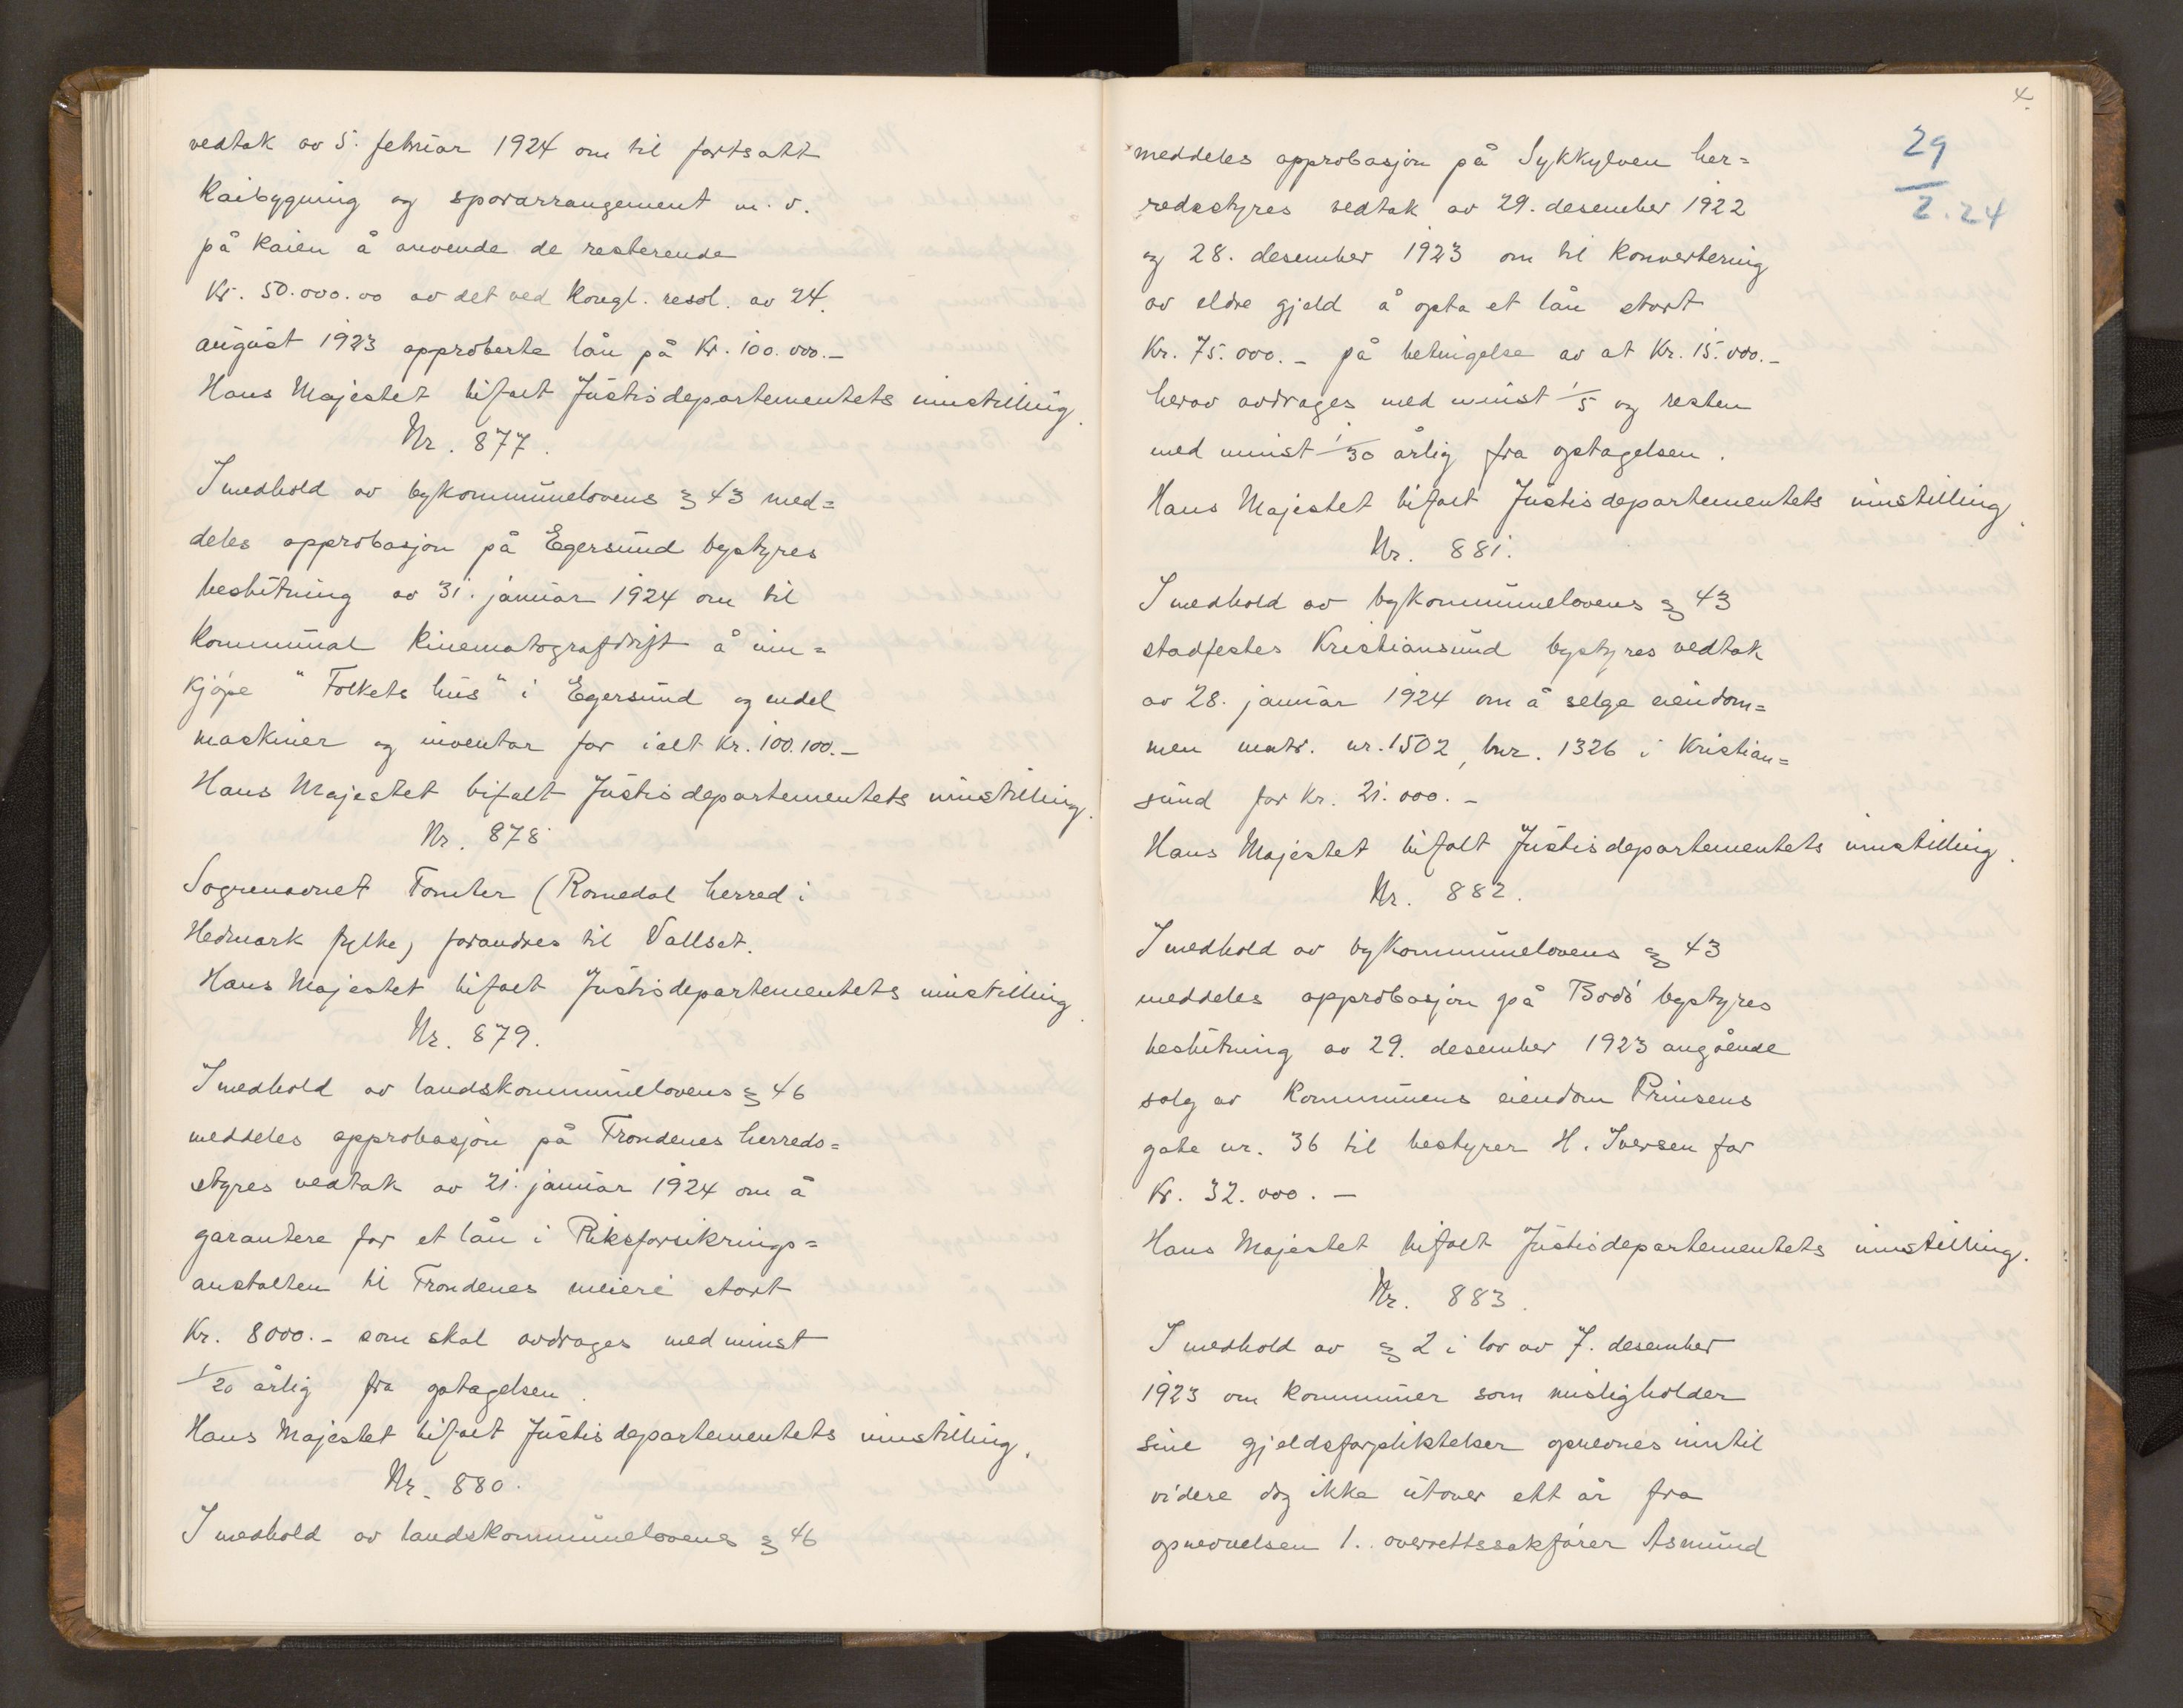 vedtak av 5. februar 1924 om til fortsatt
kaibygning og sporarrangement m. v.
på kaien å anvende de resterende
Kr. 50.000.00 av det ved kongl. resol. av 24.
august 1923 approberte lån på Kr. 100.000.-
Hans Majestet bifalt Justisdepartementets innstilling.
Nr. 877.
I medhold av bykommunelovens § 43 med=
deles approbasjon på Egersund bystyres
beslutning av 31. januar 1924 om til
kommunal kinematografdrift å inn=
kjøpe "Folkets hus" i Egersund og endel
maskiner og inventar for ialt kr. 100.100.-
Hans Majestet bifalt Justisdepartementets innstilling.
Nr. 878
Sognenavnet Tomter (Romedal herred i
Hedmark fylke) forandres til Vallset.
Hans Majestet bifalt Justisdepartementets innstilling.
Nr. 879.
I medhold av landskommunelovens § 46
meddeles approbasjon på Trondenes herreds=
styres vedtak av 21. januar 1924 om å
garantere for et lån i Riksforsikrings=
anstalten til Trondenes meieri stort
Kr. 8000.- som skal avdrages med minst
1/20 årlig fra optagelsen.
Hans Majestet bifalt Justisdepartementets innstilling.
Nr. 880.
I medhold av landskommunelovens § 46
4.
29
2.24
meddeles approbasjon på Sykkylven her=
redsstyres vedtak av 29. desember 1922
og 28. desember 1923 om til konvertering
av eldre gjeld å opta et lån stort
Kr. 75.000.- på betingelse av at Kr. 15.000.-
herav avdrages med minst 1/5 og resten
med minst 1/30 årlig fra optagelsen.
Hans Majestet bifalt Justisdepartementets innstilling.
Nr. 881.
I medhold av bykommunelovens § 43
stadfestes Kristiansund bystyres vedtak
av 28. januar 1924 om å selge eiendom=
men matr. nr. 1502, bnr. 1326 i Kristian=
sund for Kr. 21.000.-
Hans Majestet bifalt Justisdepartementets innstilling.
Nr. 882.
I medhold av bykommunelovens § 43
meddeles approbasjon på Bodø bystyres
beslutning av 29. desember 1923 angående
salg av kommunens eiendom Prinsens
gate nr. 36 til bestyrer H. Iversen for
Kr. 32.000.-
Hans Majestet bifalt Justisdepartementets innstilling.
Nr. 883.
I medhold av § 2 i lov av 7. desember
1923 om kommuner som misligholder
sine gjeldsforpliktelser opnevnes inntil
videre dog ikke utover ett år fra
opnevnelsen 1. overrettssakfører Asmund